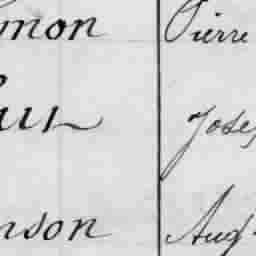 mon Pierre
Jose
nson Aug